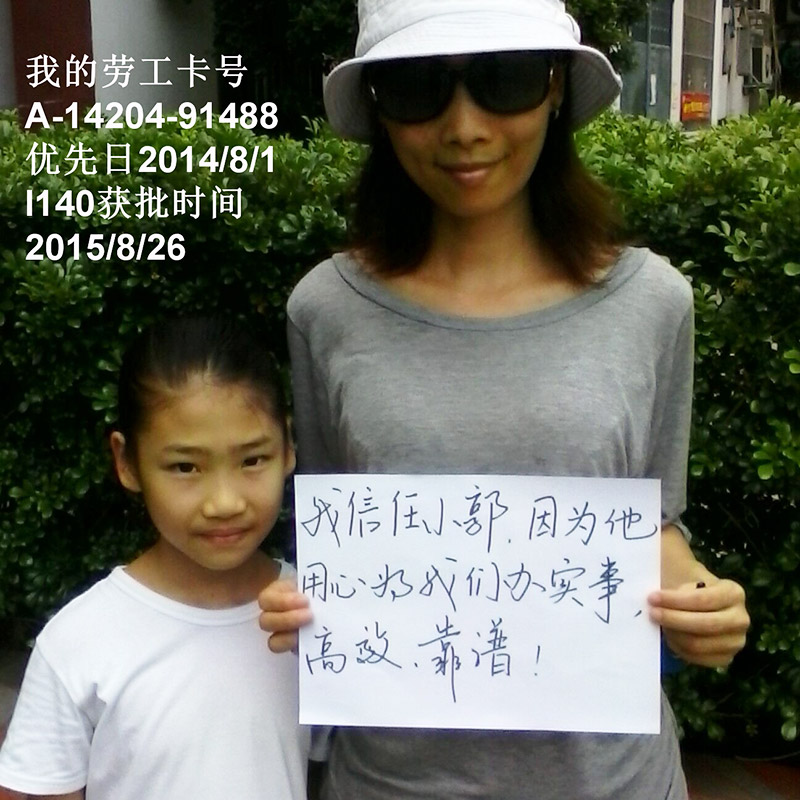 我的劳工卡号
A-14204-91488
优先日2014/8/1
I140获批时间
2015/8/26
我信任小郭,因为他
用心为我们办实事,
高效、靠谱!